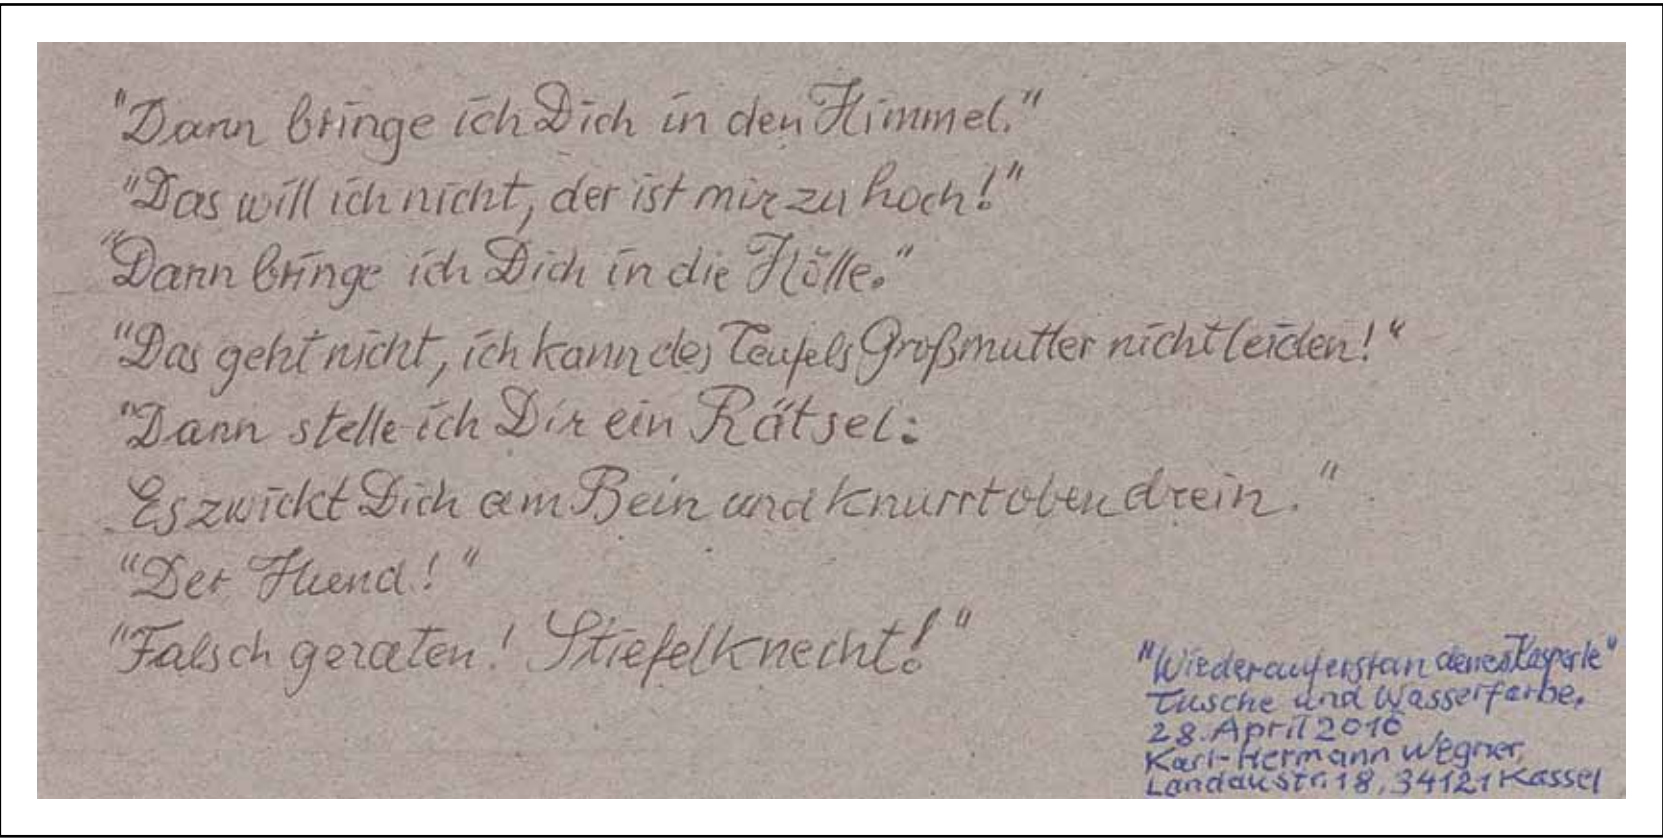 "Dann bringe ich Dich in den Himmel."
"Das will ich nicht, der ist mir zu hoch!"
"Dann bringe ich Dich in die Hölle."
"Das geht nicht, ich kann des Teufels Großmutter nicht leiden!"
"Dann stelle ich Dir ein Rätsel:
Es zwickt Dich am Bein und knurrt obendrein."
"Der Hund!"
"Falsch geraten! Stiefelknecht!"
"Wiederauferstandenes Kasperle"
Tusche und Wasserfarbe.
28. April 2016
Karl-Hermann Wegner,
Landaustr. 18, 34121 Kassel